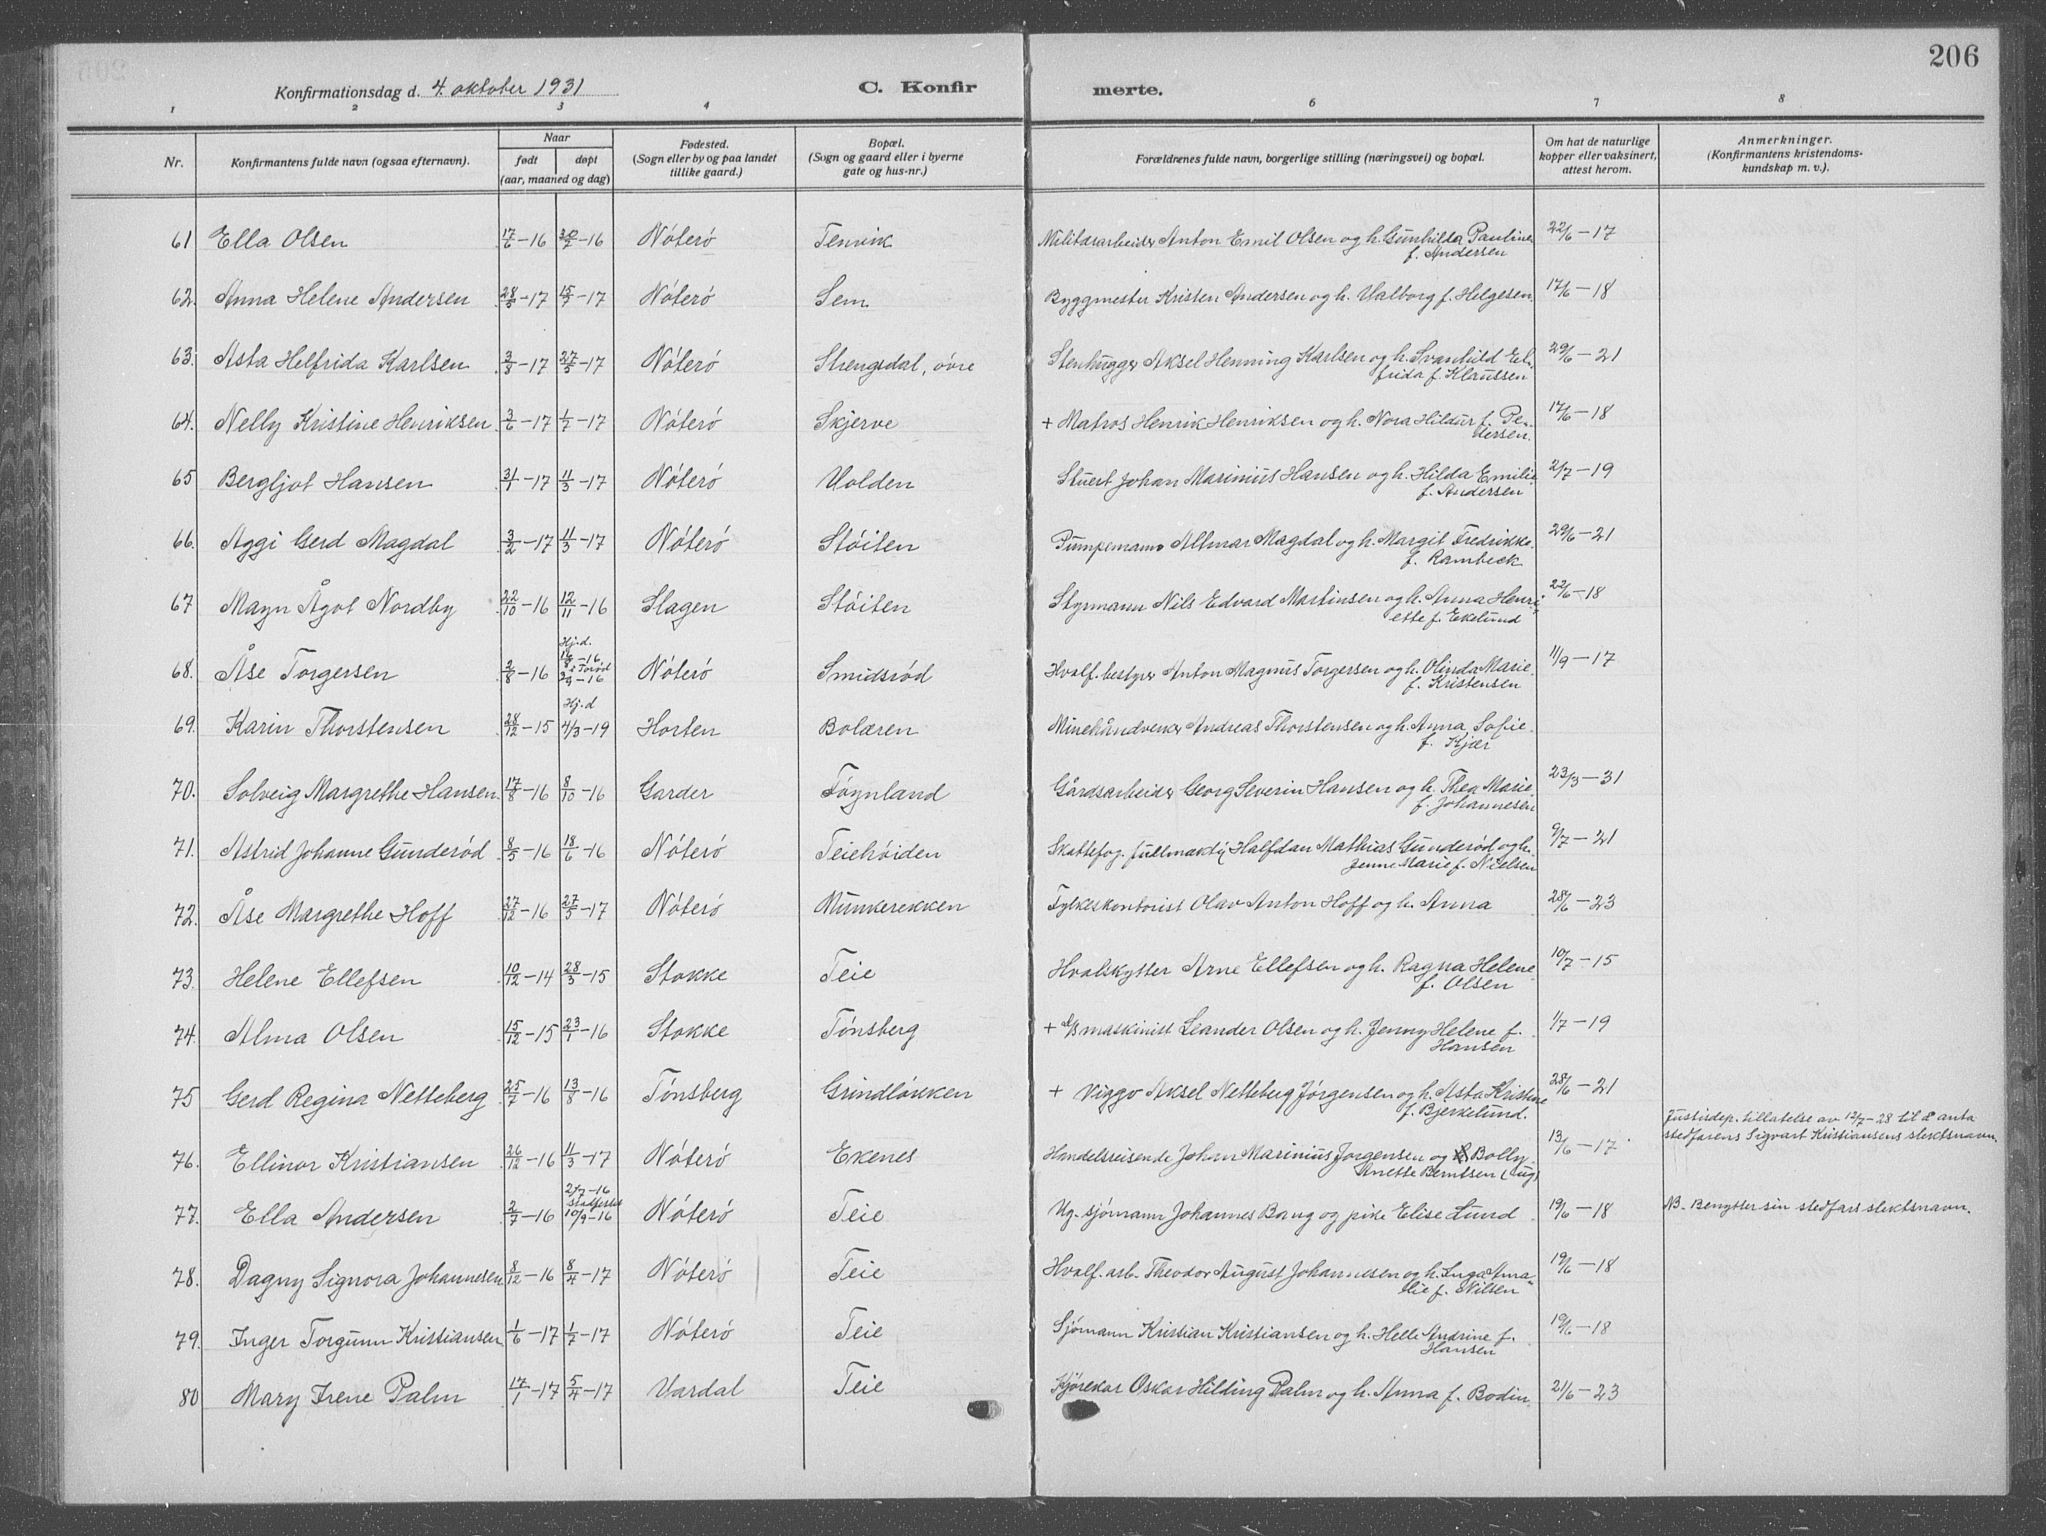 206
Konfirmationsdag d. 4. oktober 1931 C. Konfir merte.
1 2 3 4 6 7 8
Nr. Konfirmantens fulde navn (ogsaa efternavn). Naar født døpt (aar, maaned og dag) Fødested. (Sogn eller by og paa landet tillike gaard.) Bopæl. (Sogn og gaard eller i byerne gate og hus-nr.) Forældrenes fulde navn, borgerlige stilling (næringsvei) og bopæl. Om hat de naturlige kopper eller vaksinert, attest herom. Anmerkninger. (Konfirmantens kristendoms-kundskap m. v.).
61 Ella Olsen 17/6-16 30/7-16 Nøterø Tenvik Militærarbeider Anton Emil Olsen og h. Gunhilda Pauline 22/6-17
f. Andersen
62. Anna Helene Andersen 28/5-17 15/7-17 Nøterø Sem Byggmester Kristen Andersen og h. Valborg f. Helgesen. 17/6-18
63. Asta Helfrida Karlsen 3/3-17 27/5-17 Nøterø Strengsdal, övre Stenhugger Aksel Henning Karlsen og h. Svanhild El- 29/6-21
frida f. Klaussen
64. Nelly Kristine Henriksen 3/6-17 1/7-17 Nøterø Skjerve + Matros Henrik Henriksen og h. Nora Hildur f. Pe- 17/6-18
dersen.
65 Bergljot Hansen 31/1-17 11/3-17 Nøterø Volden Stuert Johan Marinius Hansen og h. Hilda Emilie 2/7-19
f. Andersen
66. Aggi Gerd Magdal 3/2-17 11/3-17 Nøterø Støiten Pumpemann Altmar Magdal og h. Margit Fredrikke 29/6-21
f. Rambeck
67 Mayn Ågot Nordby 22/10-16 12/11-16 Slagen Støiten Styrmann Nils Edvard Martinsen og h. Anna Henri- 22/6-18
ette f. Ekelund
Hj.d.
68. Åse Torgersen 2/8-16 Nøterø Smidsrød Hvalf.bestyrer Anton Magnus Torgersen og h. Olinda Marie 11/9-17
f. Kristensen
Hj.d
69. Karin Thorstensen 28/12-15 4/3-19 Horten Bolæren Minehåndverker Andreas Thorstensen og h. Anna Sofie
f. Kjær
70. Solveig Margrethe Hansen 17/8-16 8/10-16 Garder Føynland Gårdsarbeider Georg Severin Hansen og h. Thea Marie 23/3-31
f. Johannesen
71. Astrid Johanne Gunderød 8/5-16 18/6-16 Nøterø Teiehøiden Skattefog. fullmektig Halfdan Mathias Gunderød og h. 9/7-21
Jenne Marie f. Nielsen
72. Åse Margrethe Hoff 27/12-16 27/5-17 Nøterø Munkerekken Fylkeskontorist Olav Anton Hoff og h. Anna 28/6-23
73. Helene Ellefsen 10/12-14 28/3-15 Stokke Teie Hvalskytter Arne Ellefsen og h. Ragna Helene 10/7-15
f. Olsen
74. Alma Olsen 15/12-15 23/1-16 Stokke Tønsberg + d/s maskinist Leander Olsen og h. Jenny Helene f. 1/7-19
Hansen
75 Gerd Regina Netteberg 25/7-16 13/8-16 Tønsberg Grindløkken + Viggo Aksel Netteberg Jørgensen og h. Asta Kristine 28/6-21
f. Bjerkelund.
Justisdep. tillatelse av 12/7-28 til å anta
stedfarens Sigvart Kristiansens slektsnavn.
76. Ellinor Kristiansen 26/12-16 11/3-17 Nøterø Ekenes Handelsreisende Johan Marinius Jørgensen og Bolly 13/6-17
Anette Berntsen (ug)
77. Ella Andersen 2/7-16 2/7-16 stadfestet 10/9-16 Nøterø Teie Ug. sjømann Johannes Baug og pike Elise Lund 19/6-18 NB. Benytter sin stedfars slektsnavn.
78. Dagny Signora Johannesen 8/12-16 8/4-17 Nøterø Teie Hvalf. arb. Theodor August Johannesen og h. Inga Ama- 19/6-18
lie f. Nilsen
79. Inger Torgunn Kristiansen 1/6-17 1/7-17 Nøterø Teie Sjømann Kristian Kristiansen og h. Helle Andrine f. 19/6-18
Hansen
80 Mary Irene Palm 17/1-17 5/4-17 Vardal Teie Kjørekar Oskar Hilding Palm og h. Anna f. Bodin. 21/6-23